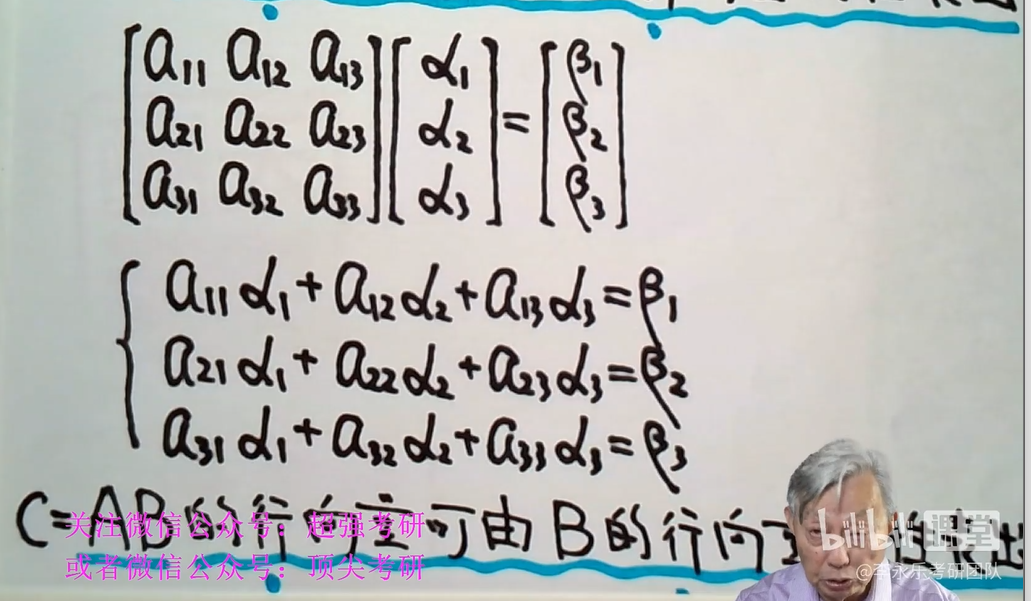 [a11 a12 a13] [α1] = [β1]
[a21 a22 a23] [α2] = [β2]
[a31 a32 a33] [α3] = [β3]
a11α1+a12α2+a13α3=β1
a21α1+a22α2+a23α3=β2
a31α1+a32α2+a33α3=β3
C=AB的行向量可由B的行向
关注微信公众号：超强考研
或者微信公众号：顶尖考研
bilibili 课堂
@李永乐考研团队